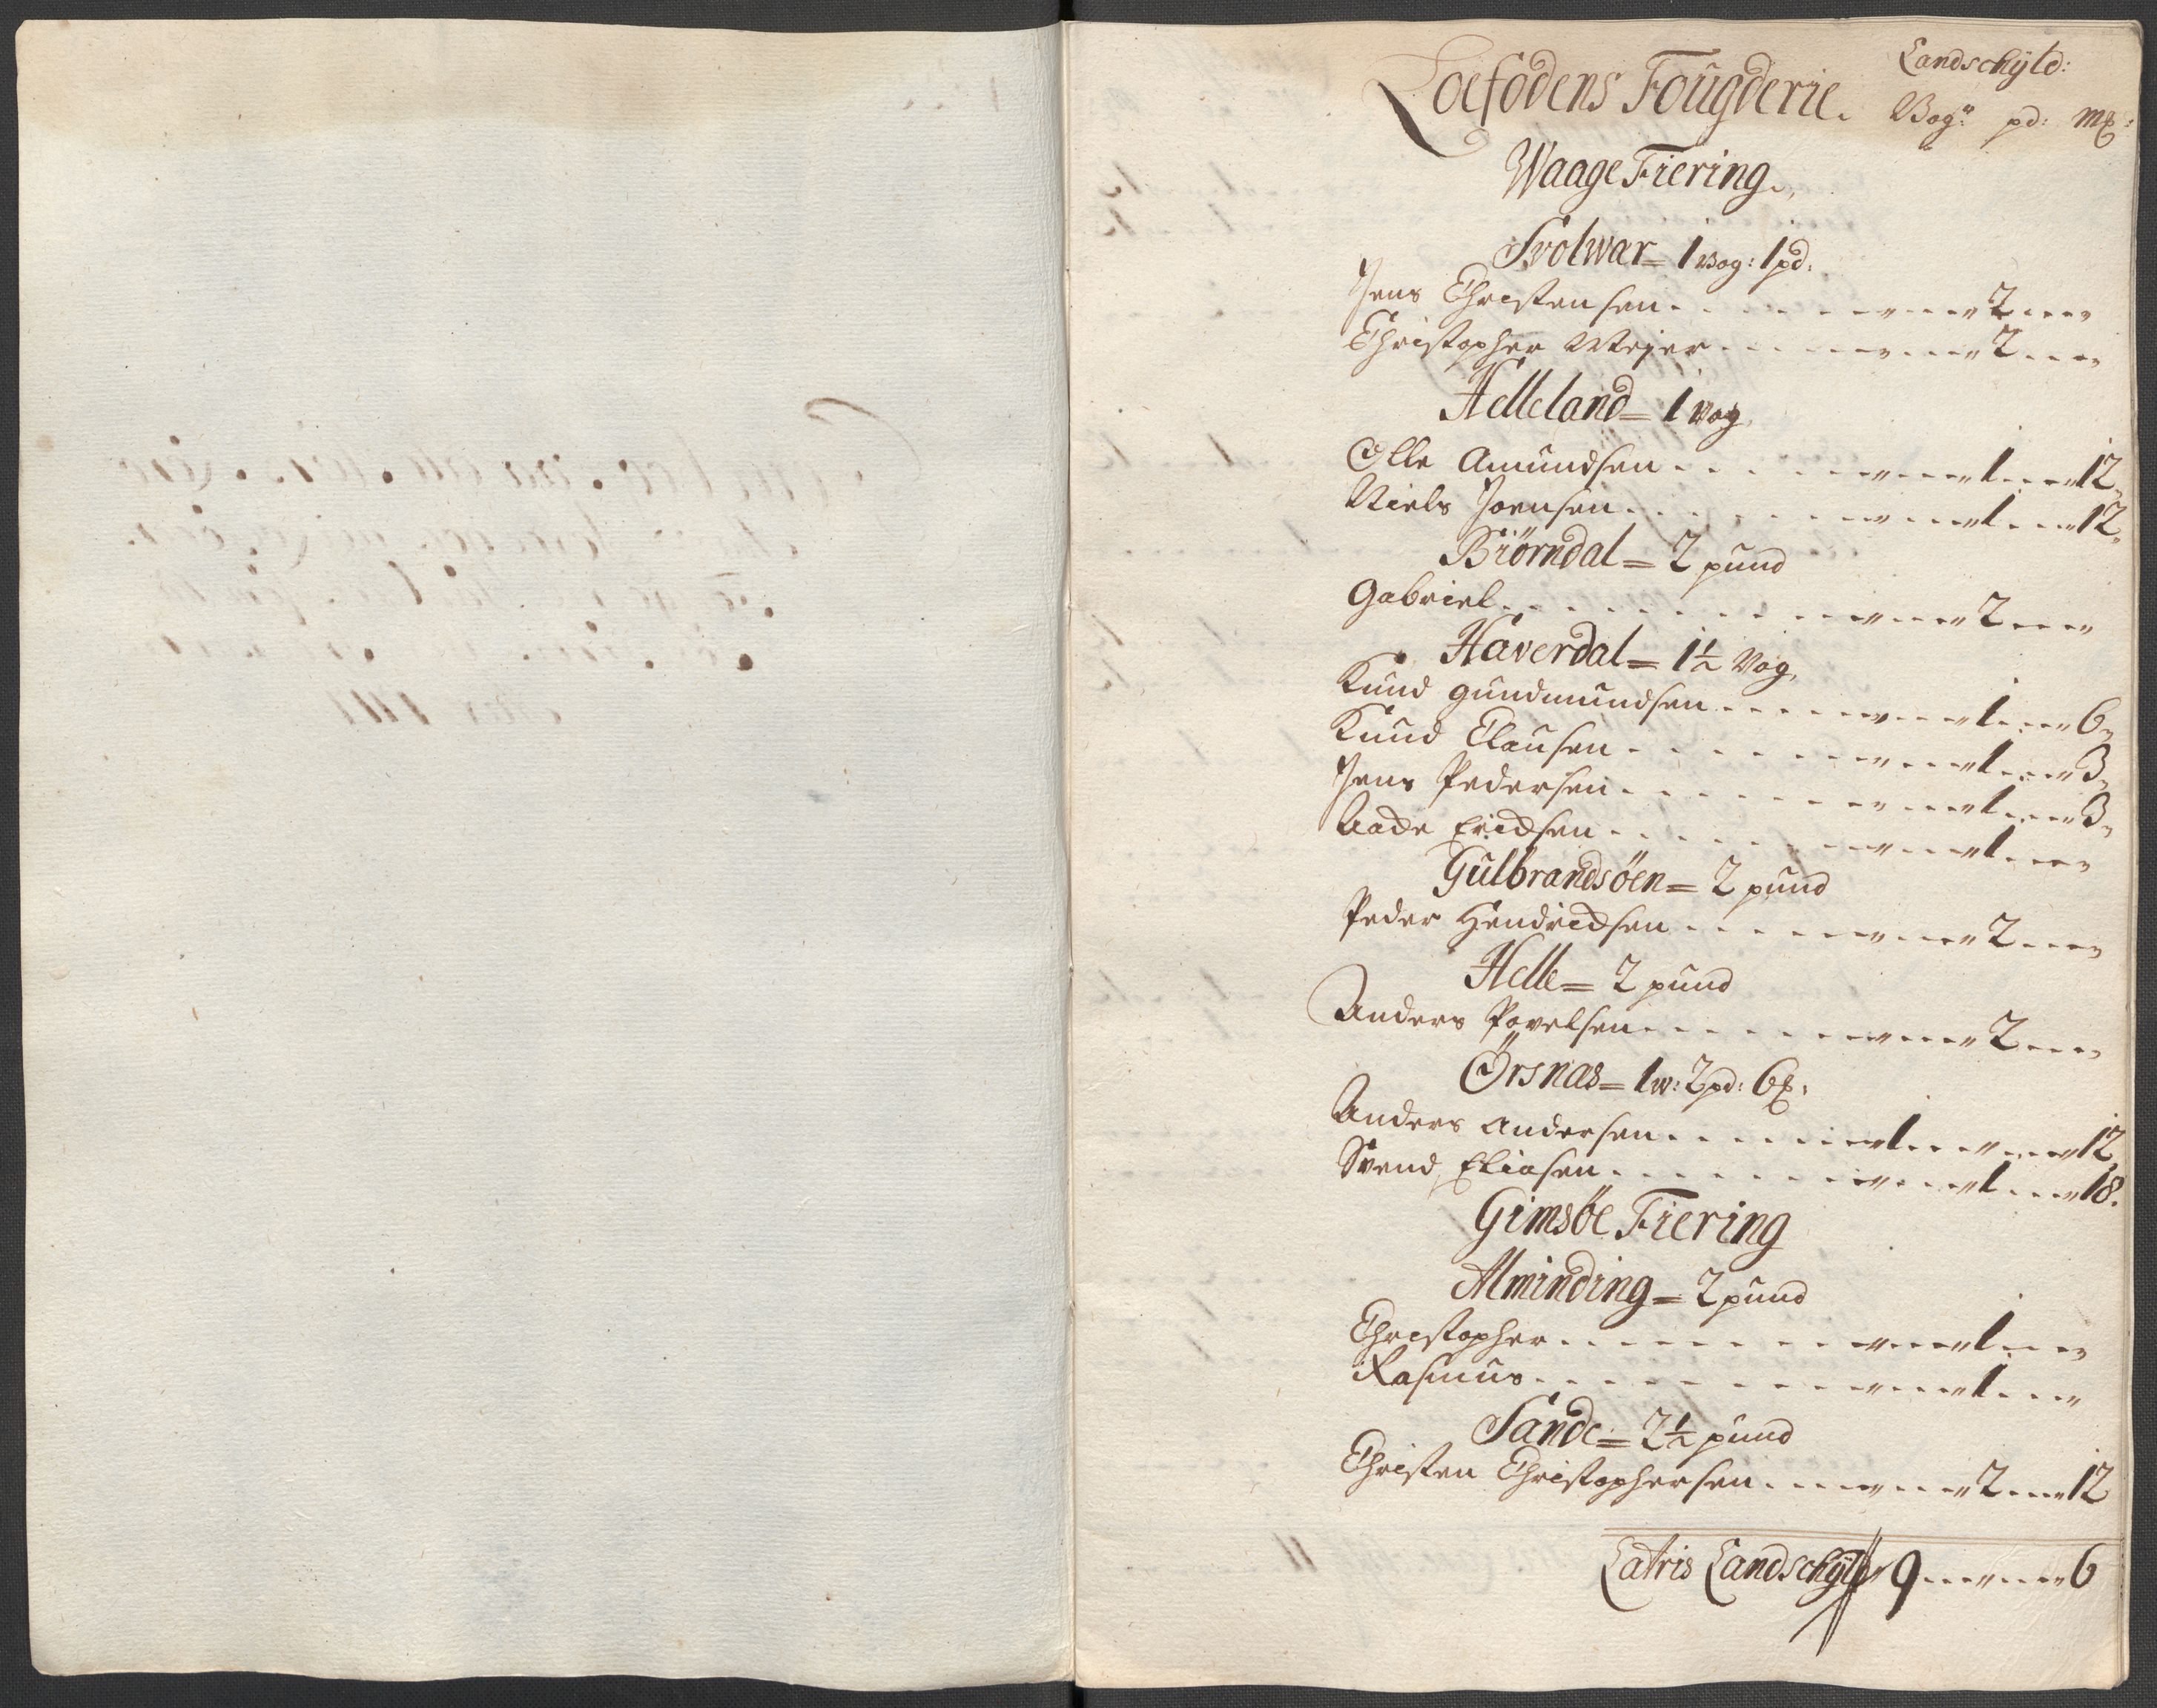 Landschyld:
Loefodens Fougderie. Vog: pd: mk:
Waage Fiering.
Svolwar = 1 Vog: 1 pd:
Jens Christensen . . . . . . " . . . " 2 . . . "
Christopher Meyer . . . . . " . . . " 2 . . . "
Helleland = 1 Vog
Olle Amundsen . . . . . . " . . . " 1 . . . " 12
Niels Joensen . . . . . . " . . . " 1 . . . " 12.
Biörndal = 2 pund
Gabriel . . . . . . . . . " . . . " 2 . . . "
Haverdal = 1½ Vog,
Knud Gundmundsen . . . . . " . . . " 1 . . . " 6
Knud Clausen . . . . . . " . . . " 1 . . . " 3
Jens Pedersen . . . . . . " . . . " 1 . . . " 3
Aade Ericksen . . . . . . " . . . " 1 . . . "
Gulbrandsöen = 2 pund
Peder Hendricksen . . . . . " . . . " 2 . . . "
Helle = 2 pund
Anders Povelsen . . . . . . " . . . " 2 . . . "
Örsnæs = 1 w: 2 pd: 6 mk:
Anders Andersen . . . . . . " 1 . . . " . . . " 12
Svend Eliasen . . . . . . " . . . " 1 . . . " 18.
Gimsöe Fiering
Alminding = 2 pund
Christopher . . . . . . . " . . . " 1 . . . "
Rasmus . . . . . . . . " . . . " 1 . . . "
Sande = 2½ pund
Christen Christophersen . . . . " . . . " 2 . . . " 12
Latris Landschyld 9 . . . " . . . " 6